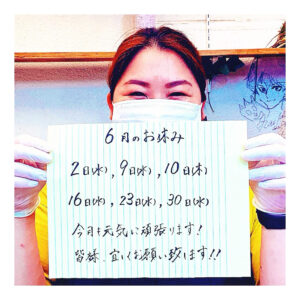 6月のお休み
2日(水), 9日(水), 10日(木)
16日(水), 23日(水), 30日(水)
今月も元気に頑張ります!
皆様、宜しくお願い致します!!